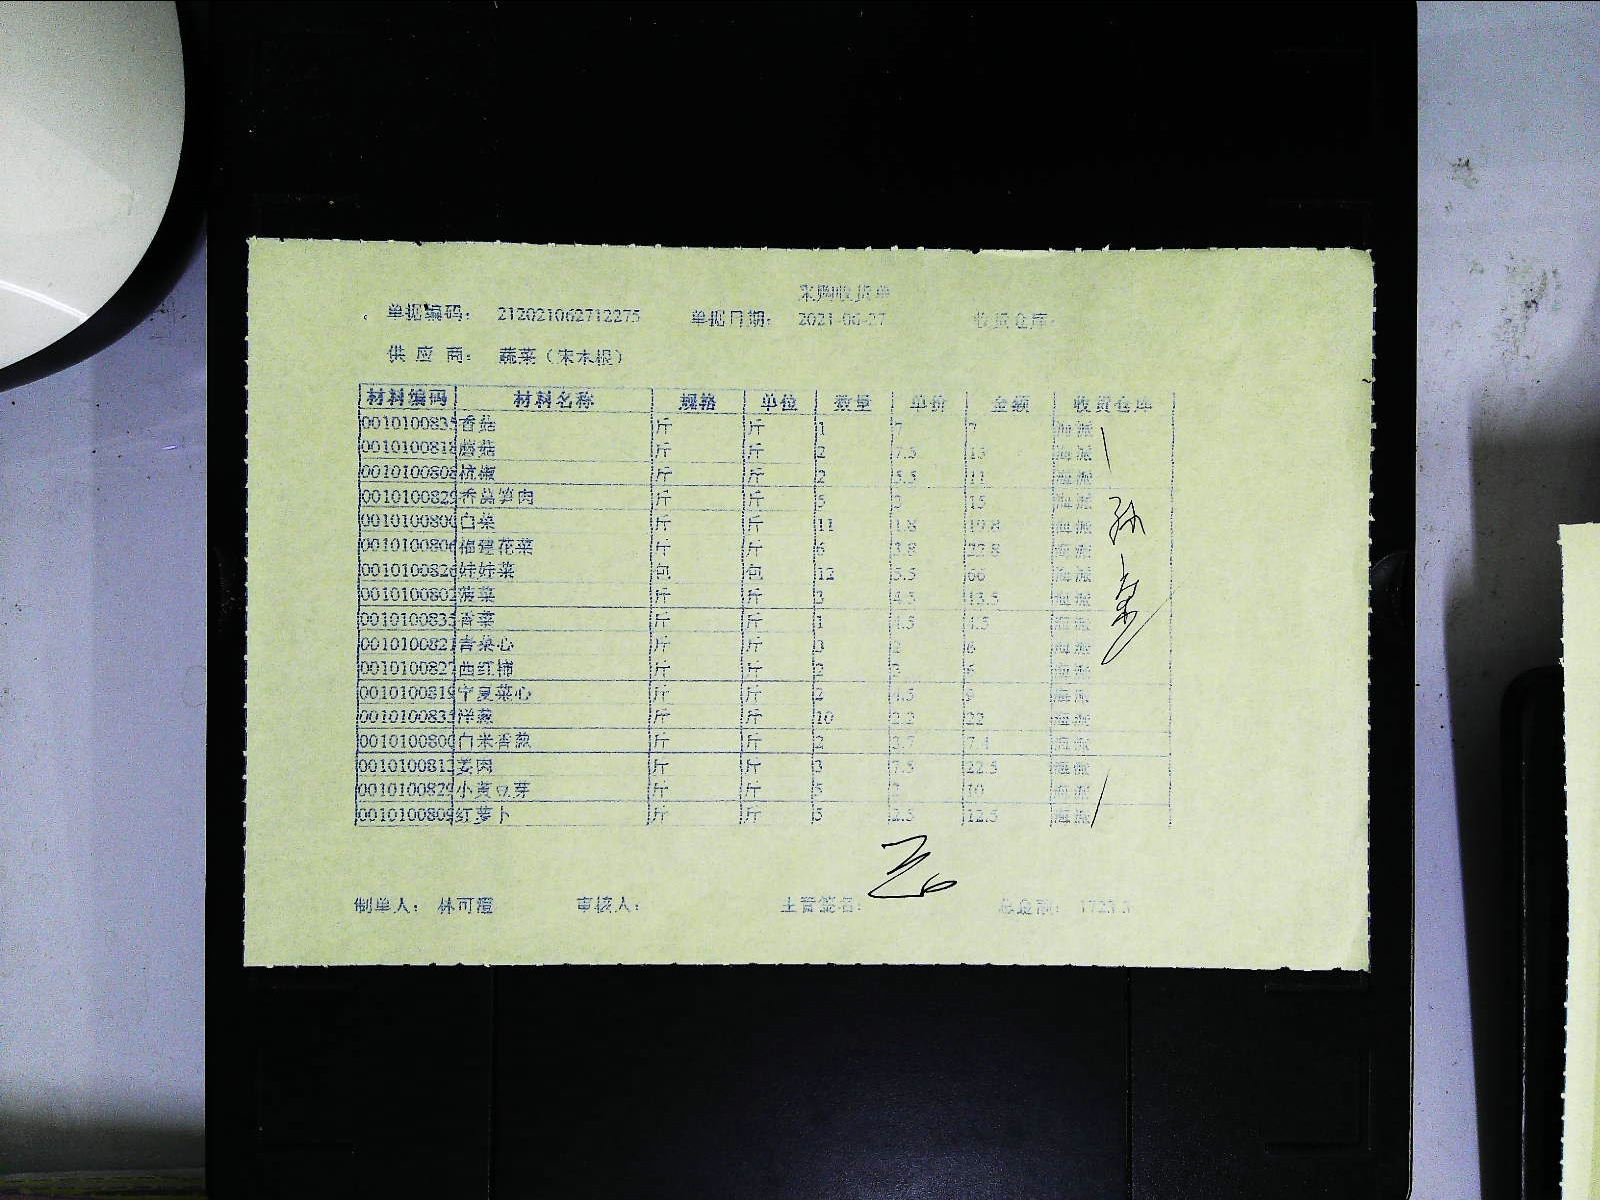 采购收货单
单据编码： 212021062712275 单据日期： 2021-06-27 收货仓库：
供 应 商： 蔬菜（宋木根）
材料编码 材料名称 规格 单位 数量 单价 金额 收货仓库
001010083 香菇 斤 斤 1 7 7 海派
001010081 蘑菇 斤 斤 2 7.5 15 海派
001010080 杭椒 斤 斤 2 5.5 11 海派
001010082 香莴笋肉 斤 斤 5 3 15 海派
001010080 白菜 斤 斤 11 1.8 19.8 海派
001010080 福建花菜 斤 斤 6 3.8 22.8 海派
001010082 娃娃菜 包 包 12 5.5 66 海派
001010080 菠菜 斤 斤 3 4.5 13.5 海派
001010083 香菜 斤 斤 1 4.5 4.5 海派
001010082 青菜心 斤 斤 3 2 6 海派
001010082 西红柿 斤 斤 2 3 6 海派
001010081 宁夏菜心 斤 斤 2 4.5 9 海派
001010083 洋葱 斤 斤 10 2.2 22 海派
001010080 白米香葱 斤 斤 2 3.7 7.4 海派
001010081 姜肉 斤 斤 3 7.5 22.5 海派
001010082 小黄豆芽 斤 斤 5 2 10 海派
001010080 红萝卜 斤 斤 5 2.5 12.5 海派
制单人： 林可澄 审核人： 主管签名： 总金额： 1723.3